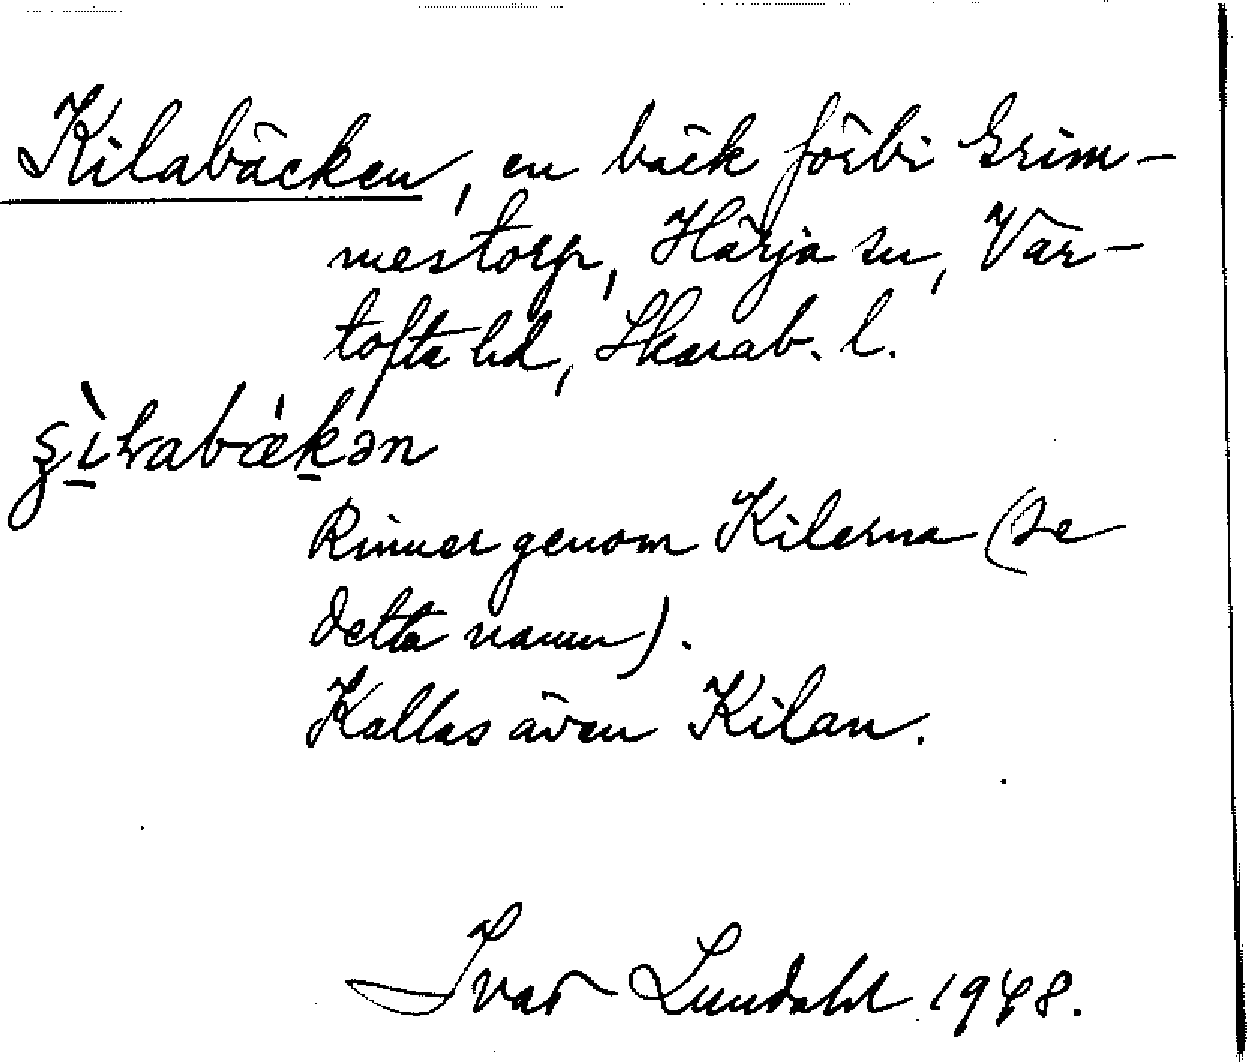 Kilabäcken, en bäck förbi Grim-
mestorp, Härja sn, Var-
tofta hd, Skarab. l.
Rinner genom Kilerna (se
detta namn).
Kallas även Kilan.
Ivar Lundahl 1948.